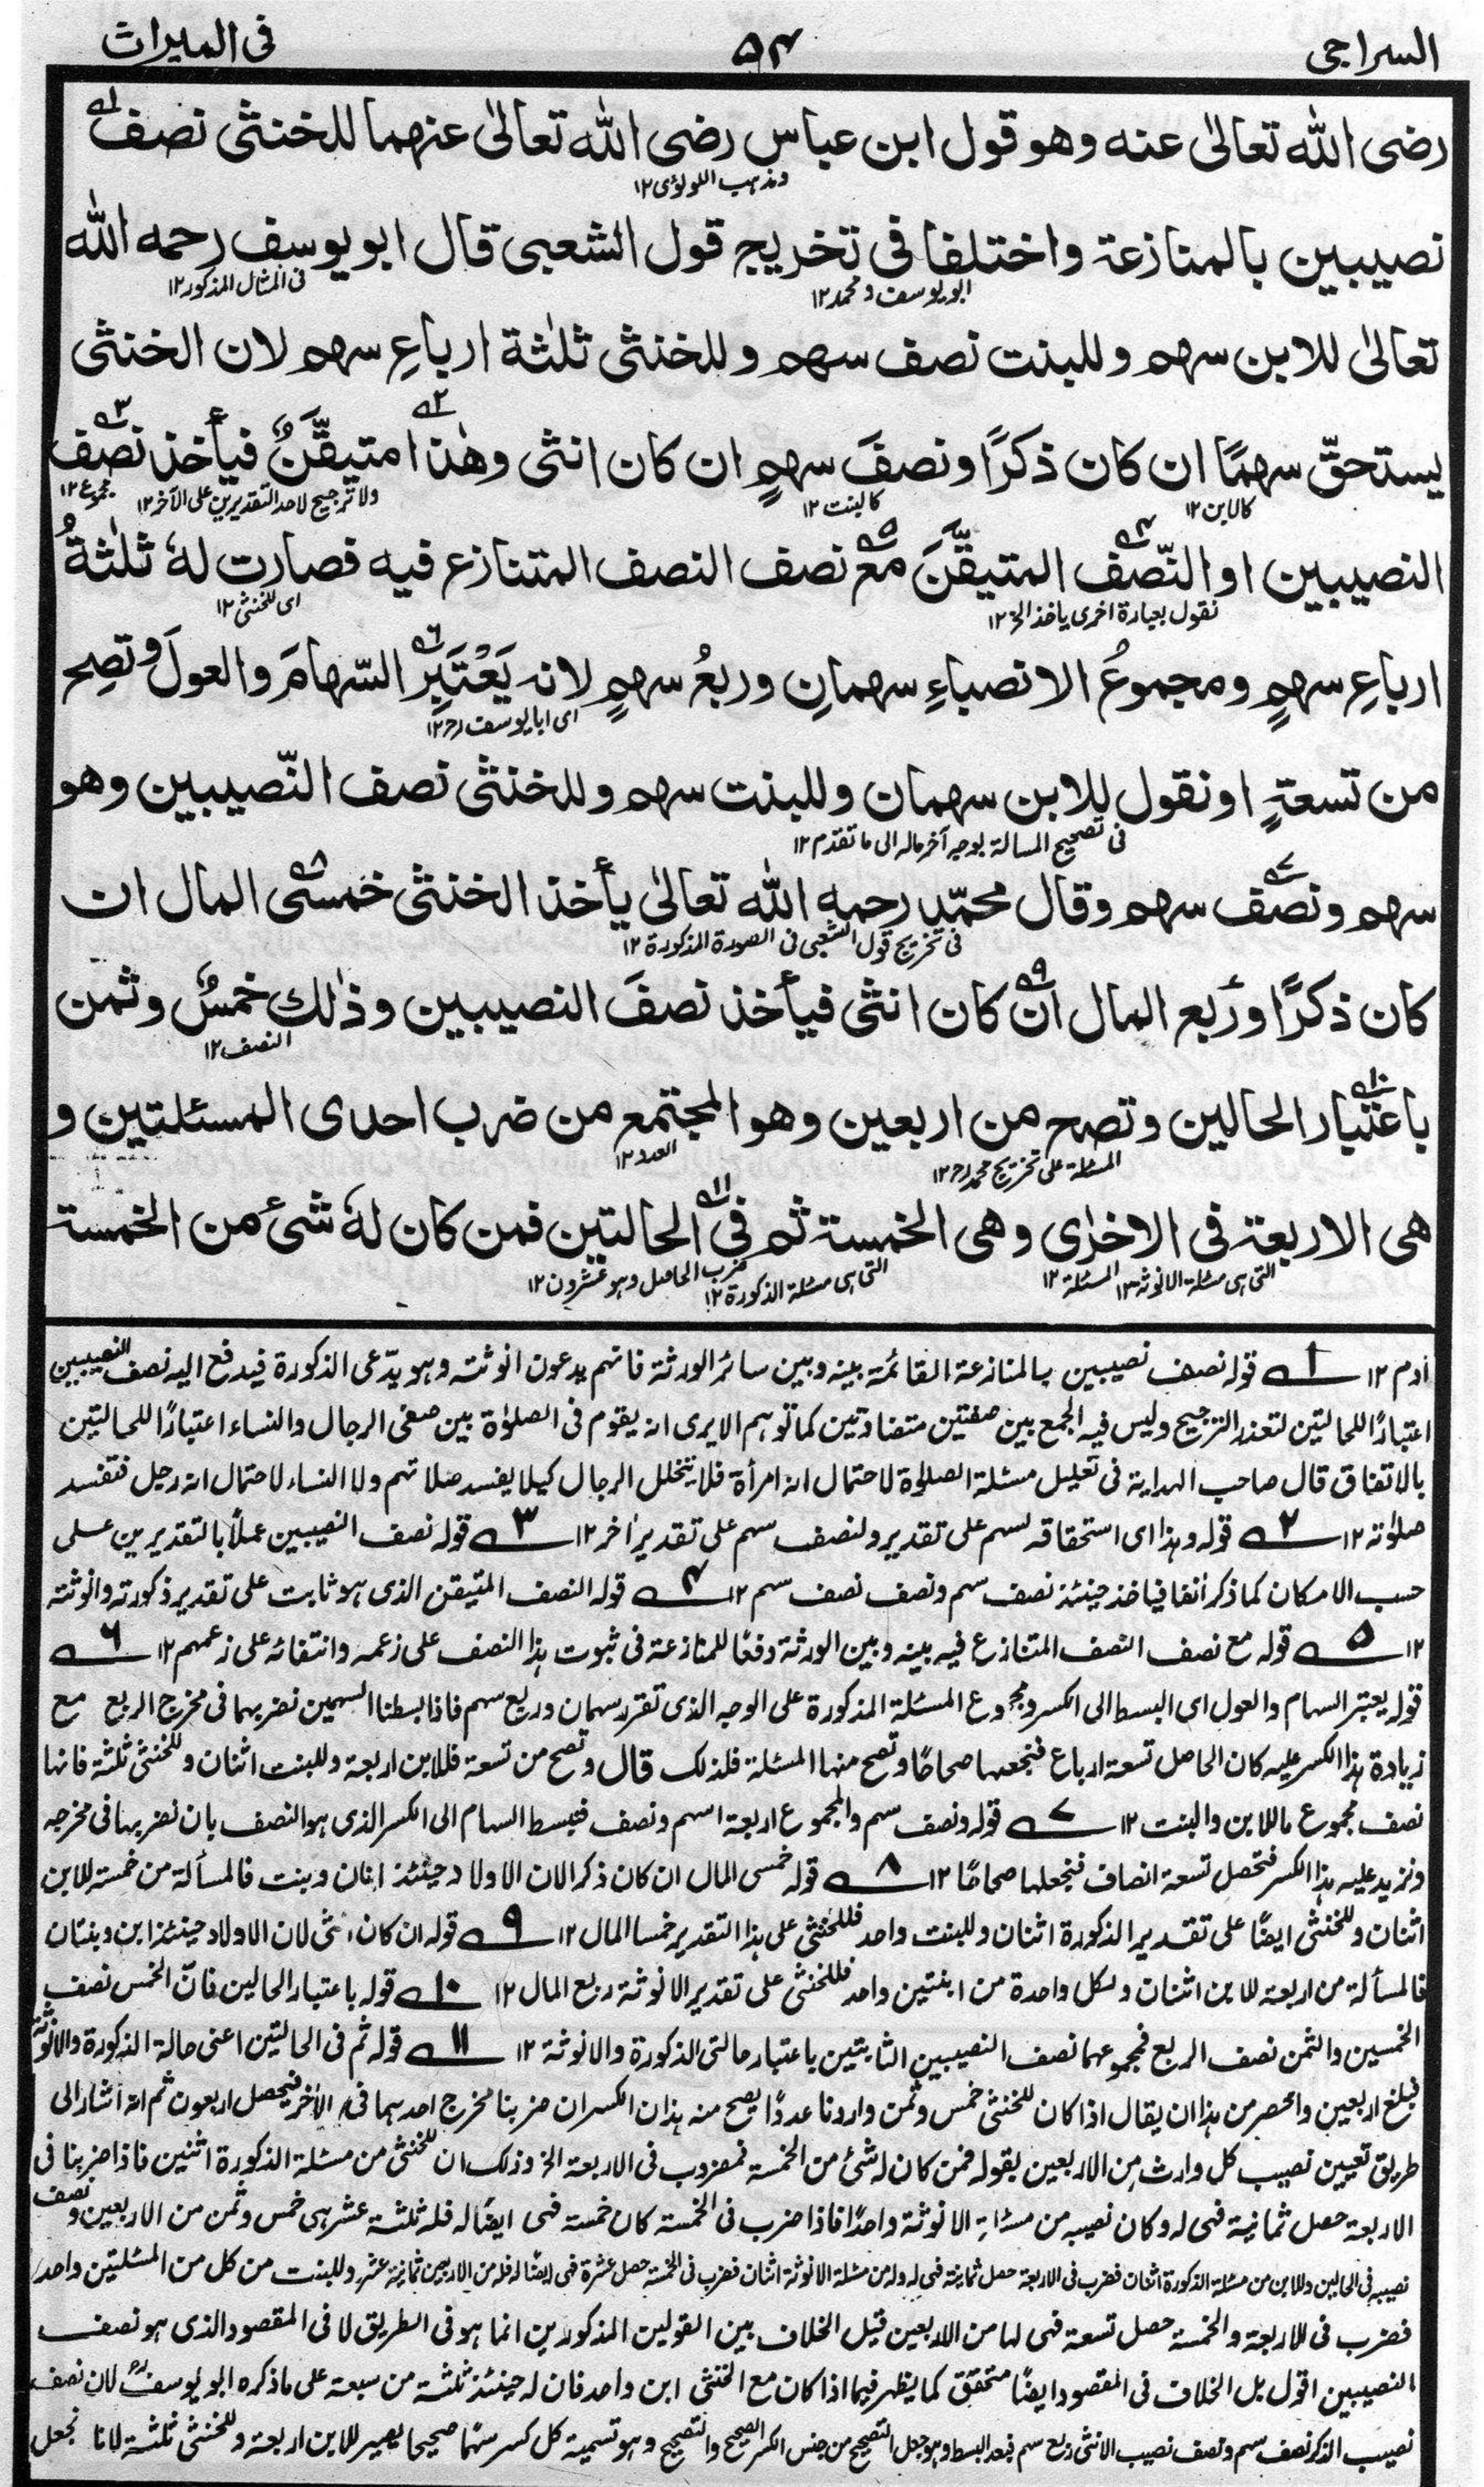 السراجی ۵۴ فی المیراث
رضی الله تعالیٰ عنه وهو قول ابن عباس رضی الله تعالیٰ عنهما للخنثی نصف
ومذہب اللولوی ۱۲
نصیبین بالمنازعة واختلفا فی تخریج قول الشعبی قال ابو یوسف رحمه الله
ابو یوسف و محمد ۱۲ فی المثال المذکور ۱۲
تعالیٰ للابن سهم وللبنت نصف سهم وللخنثی ثلٰثة ارباعِ سهم لان الخنثی
یستحقّ سهمًا ان کان ذکرًا ونصفَ سهمٍ ان کان انثی وهٰذا متیقَّنٌ فیأخذ نصف
کالابن ۱۲ کالبنت ۱۲ ولا ترجیح لاحد التقدیرین علی الآخر ۱۲ مجموع ۱۲
النصیبین او النّصف المتیقَّنَ مع نصف النصف المتنازع فیه فصارت لهٗ ثلٰثةُ
نقول بعبارة اخری یاخذ الخ ۱۲ ای للخنثی ۱۲
ارباعِ سهمٍ ومجموعُ الانصباءِ سهمانِ وربعُ سهمٍ لانه یَعْتَبِر السّهامَ والعولَ وتصِح
ای ابا یوسف رح ۱۲
من تسعةٍ او نقول للابن سهمان وللبنت سهم وللخنثی نصف النّصیبین وهو
فی تصحیح المسالة بوجه آخر مآله الی ما تقدم ۱۲
سهم ونصف سهم وقال محمّد رحمه الله تعالیٰ یأخذ الخنثی خمسی المال ان
فی تخریج قول الشعبی فی الصورة المذکورة ۱۲
کان ذکرًا ورُبع المال ان کان انثی فیأخذ نصفَ النصیبین وذٰلك خمسٌ وثمن
النصف ۱۲
باعتبار الحالین وتصح من اربعین وهو المجتمع من ضرب احدی المسئلتین و
المسئلة علی تخریج محمد رح ۱۲ العدد ۱۲
هی الاربعة فی الاخرٰی وهی الخمسة ثم فی الحالتین فمن کان لهٗ شیٔ من الخمسة
التی ہی مسئلة الانوثة ۱۲ المسئلة ۱۲ التی ہی مسئلة الذکورة ۱۲ ضرب الحاصل وہو عشرون ۱۲
اٰدم ۱۲ ۱ قوله نصف نصیبین بالمنازعة القائمة بینه وبین سائر الورثة فانهم یدعون انوثته وهو یدّعی الذکورة فیدفع الیه نصف النصیبین
اعتبارًا للحالتین لتعذر الترجیح ولیس فیه الجمع بین صفتین متضادتین کما توہم الا یری انه یقوم فی الصلوٰة بین صفی الرجال والنساء اعتبارًا للحالتین
بالاتفاق قال صاحب الہدایة فی تعلیل مسئلة الصلوٰة لاحتمال انه امرأة فلا یتخلل الرجال کیلا یفسد صلاتہم ولا النساء لاحتمال انه رجل فتفسد
صلوٰته ۱۲ ۲ قوله وہذا ای استحقاقه لسہم علی تقدیر ولنصف سہم علی تقدیر اٰخر ۱۲ ۳ قوله نصف النصیبین عملاً بالتقدیرین علی
حسب الامکان کما ذکر اٰنفا فیاخذ حینئذ نصف سہم ونصف نصف سہم ۱۲ ۴ قوله النصف المتیقن الذی ہو ثابت علی تقدیر ذکورته وانوثته
۱۲ ۵ قوله مع نصف النصف المتنازع فیه بینه وبین الورثة دفعًا للمنازعة فی ثبوت ہذا النصف علی زعمه وانتفائه علی زعمہم ۱۲ ۶
قوله یعتبر السہام والعول ای البسط الی الکسر ومجموع المسئلة المذکورة علی الوجه الذی تقرر سہمان وربع سہم فاذا بسطنا السہمین نضربہما فی مخرج الربع مع
زیادة ہذا الکسر علیه کان الحاصل تسعة ارباع فنجعلہا صحاحًا وتصح منہا المسئلة فلذلک قال وتصح من تسعة فللابن اربعة وللبنت اثنان وللخنثی ثلثة فانها
نصف مجموع ما للابن والبنت ۱۲ ۷ قوله ونصف سہم والمجموع اربعة اسہم ونصف فتبسط السہام الی الکسر الذی ہو النصف بان نضربہا فی مخرجه
ونزید علیه ہذا الکسر فتحصل تسعة انصاف فنجعلہا صحاحًا ۱۲ ۸ قوله خمسی المال ان کان ذکرا لان الاولاد حینئذ ابنان وبنت فالمسألة من خمسة للابن
اثنان وللخنثی ایضًا علی تقدیر الذکورة اثنان وللبنت واحد فللخنثی علی ہذا التقدیر خمسا المال ۱۲ ۹ قوله ان کان انثی لان الاولاد حینئذ ابن وبنتان
فالمسألة من اربعة للابن اثنان ولکل واحدة من ابنتین واحد فللخنثی علی تقدیر الانوثة ربع المال ۱۲ ۱۰ قوله باعتبار الحالین فانّ الخمس نصف
الخمسین والثمن نصف الربع فمجموعہما نصف النصیبین الثابتین باعتبار حالتی الذکورة والانوثة ۱۲ ۱۱ قوله ثم فی الحالتین اعنی حالة الذکورة والانوثة
فبلغ اربعین واخصر من ہذا ان یقال اذا کان للخنثی خمس وثمن واردنا عددًا یصح منه ہذان الکسران ضربنا مخرج احدہما فی الاٰخر فیحصل اربعون ثم انه اشار الی
طریق تعیین نصیب کل وارث من الاربعین بقوله فمن کان له شئ من الخمسة فمضروب فی الاربعة الخ وذلک ان للخنثی من مسئلة الذکورة اثنین فاذا ضربنا فی
الاربعة حصل ثمانیة فہی له وکان نصیبه من مسئلة الانوثة واحدًا فاذا ضرب فی الخمسة کان خمسة فہی ایضًا له فله ثلثة عشر ہی خمس وثمن من الاربعین ونصف
نصیبه فی الحالین وللابن من مسئلة الذکورة اثنان فضرب فی الاربعة حصل ثمانیة فہی له وله من مسئلة الانوثة اثنان فضرب فی الخمسة حصل عشرة فہی ایضًا له فله من الاربعین ثمانیة عشر وللبنت من کل من المسئلتین واحد
فضرب فی الاربعة والخمسة حصل تسعة فہی لہا من الاربعین قیل الخلاف بین القولین المذکورین انما ہو فی الطریق لا فی المقصود الذی ہو نصف
النصیبین اقول بل الخلاف فی المقصود ایضًا متحقق کما یظہر فیما اذا کان مع الخنثی ابن واحد فان له حینئذ ثلثة من سبعة علی ما ذکره ابو یوسف لان نصف
نصیب الذکر نصف سہم ونصف نصیب الانثی ربع سہم فبعد البسط وہو جعل الصحیح من جنس الکسر والتصحیح وہو تسمیة کل کسر سہمًا صحیحا یصیر للابن اربعة وللخنثی ثلثة لانا نجعل